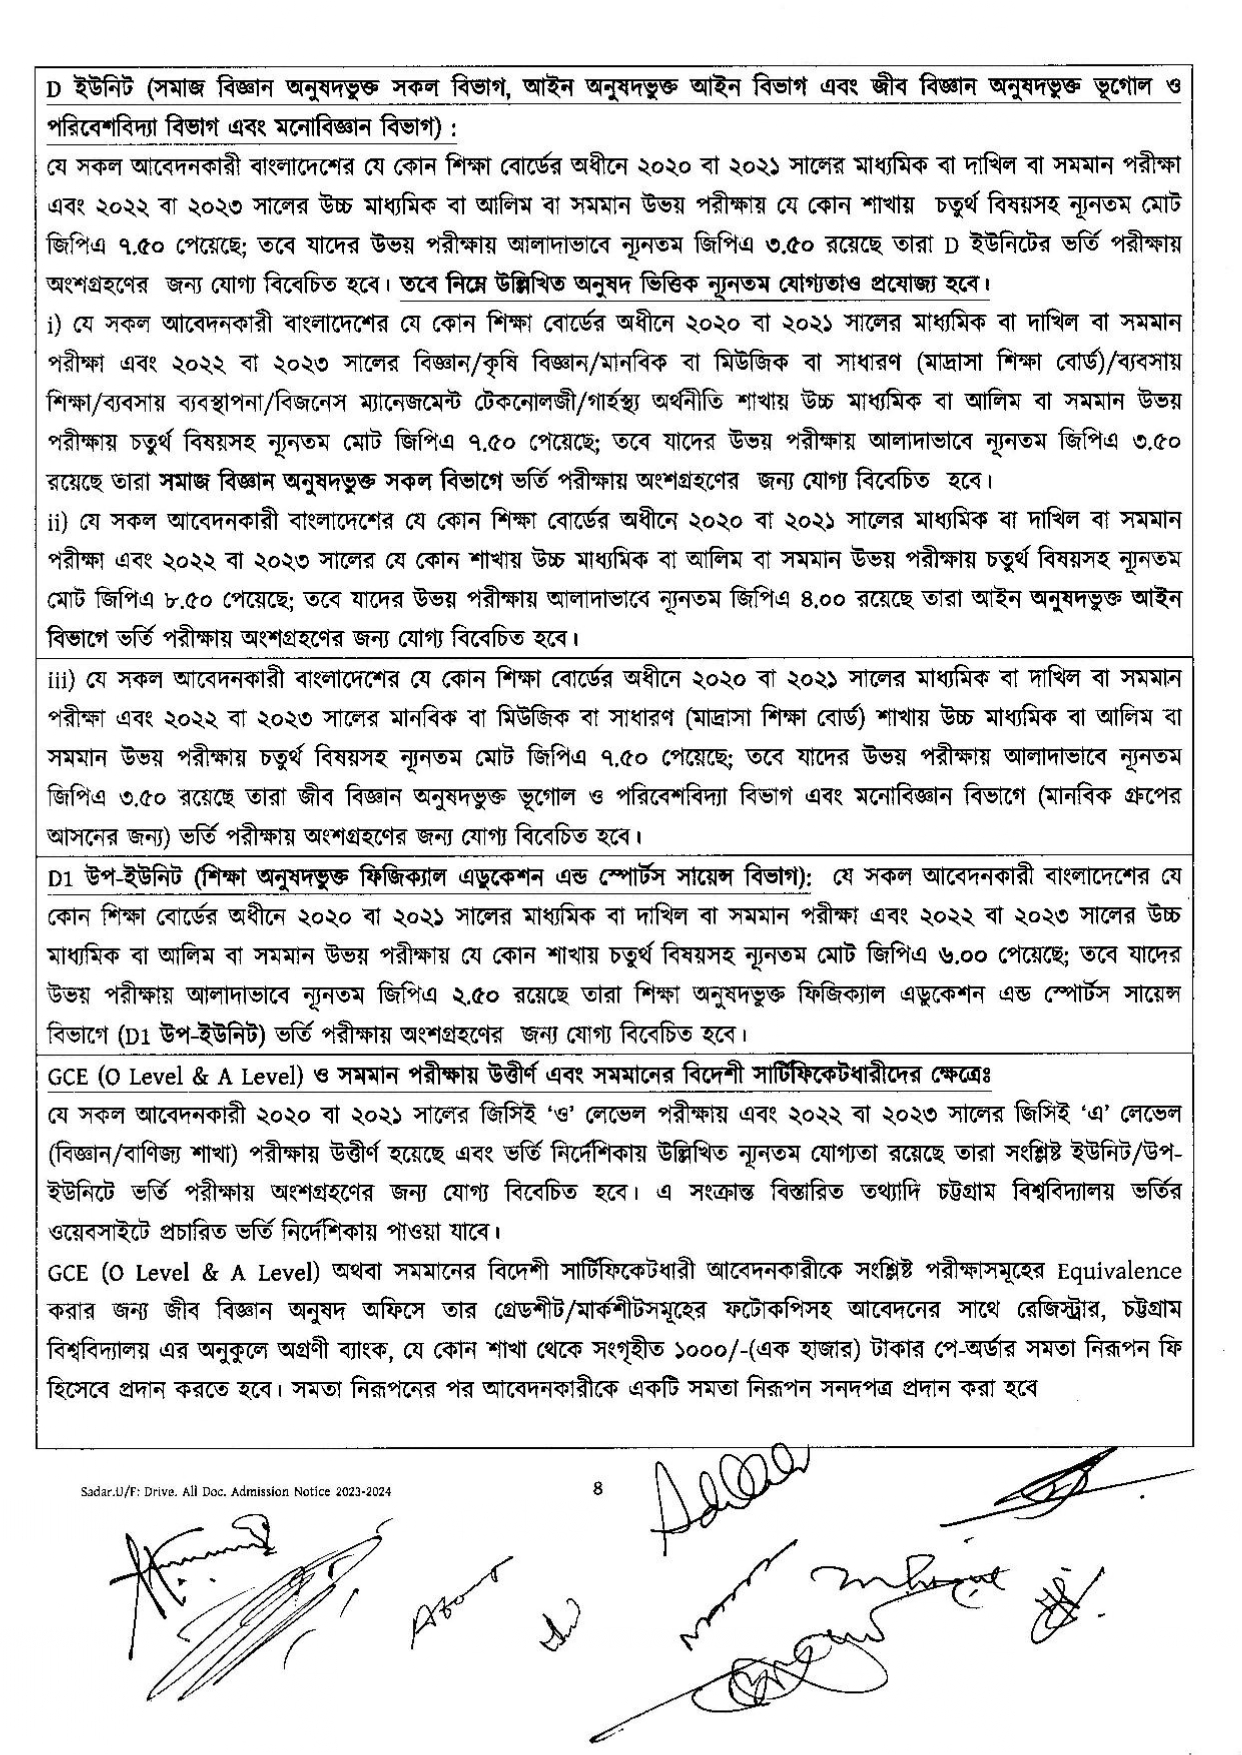 D ইউনিট (সমাজ বিজ্ঞান অনুষদভুক্ত সকল বিভাগ, আইন অনুষদভুক্ত আইন বিভাগ এবং জীব বিজ্ঞান অনুষদভুক্ত ভূগোল ও
পরিবেশবিদ্যা বিভাগ এবং মনোবিজ্ঞান বিভাগ) :
যে সকল আবেদনকারী বাংলাদেশের যে কোন শিক্ষা বোর্ডের অধীনে ২০২০ বা ২০২১ সালের মাধ্যমিক বা দাখিল বা সমমান পরীক্ষা
এবং ২০২২ বা ২০২৩ সালের উচ্চ মাধ্যমিক বা আলিম বা সমমান উভয় পরীক্ষায় যে কোন শাখায় চতুর্থ বিষয়সহ ন্যূনতম মোট
জিপিএ ৭.৫০ পেয়েছে; তবে যাদের উভয় পরীক্ষায় আলাদাভাবে ন্যূনতম জিপিএ ৩.৫০ রয়েছে তারা D ইউনিটের ভর্তি পরীক্ষায়
অংশগ্রহণের জন্য যোগ্য বিবেচিত হবে। তবে নিম্নে উল্লিখিত অনুষদ ভিত্তিক ন্যূনতম যোগ্যতাও প্রযোজ্য হবে।
i) যে সকল আবেদনকারী বাংলাদেশের যে কোন শিক্ষা বোর্ডের অধীনে ২০২০ বা ২০২১ সালের মাধ্যমিক বা দাখিল বা সমমান
পরীক্ষা এবং ২০২২ বা ২০২৩ সালের বিজ্ঞান/কৃষি বিজ্ঞান/মানবিক বা মিউজিক বা সাধারণ (মাদ্রাসা শিক্ষা বোর্ড)/ব্যবসায়
শিক্ষা/ব্যবসায় ব্যবস্থাপনা/বিজনেস ম্যানেজমেন্ট টেকনোলজী/গার্হস্থ্য অর্থনীতি শাখায় উচ্চ মাধ্যমিক বা আলিম বা সমমান উভয়
পরীক্ষায় চতুর্থ বিষয়সহ ন্যূনতম মোট জিপিএ ৭.৫০ পেয়েছে; তবে যাদের উভয় পরীক্ষায় আলাদাভাবে ন্যূনতম জিপিএ ৩.৫০
রয়েছে তারা সমাজ বিজ্ঞান অনুষদভুক্ত সকল বিভাগে ভর্তি পরীক্ষায় অংশগ্রহণের জন্য যোগ্য বিবেচিত হবে।
ii) যে সকল আবেদনকারী বাংলাদেশের যে কোন শিক্ষা বোর্ডের অধীনে ২০২০ বা ২০২১ সালের মাধ্যমিক বা দাখিল বা সমমান
পরীক্ষা এবং ২০২২ বা ২০২৩ সালের যে কোন শাখায় উচ্চ মাধ্যমিক বা আলিম বা সমমান উভয় পরীক্ষায় চতুর্থ বিষয়সহ ন্যূনতম
মোট জিপিএ ৮.৫০ পেয়েছে; তবে যাদের উভয় পরীক্ষায় আলাদাভাবে ন্যূনতম জিপিএ ৪.০০ রয়েছে তারা আইন অনুষদভুক্ত আইন
বিভাগে ভর্তি পরীক্ষায় অংশগ্রহণের জন্য যোগ্য বিবেচিত হবে।
iii) যে সকল আবেদনকারী বাংলাদেশের যে কোন শিক্ষা বোর্ডের অধীনে ২০২০ বা ২০২১ সালের মাধ্যমিক বা দাখিল বা সমমান
পরীক্ষা এবং ২০২২ বা ২০২৩ সালের মানবিক বা মিউজিক বা সাধারণ (মাদ্রাসা শিক্ষা বোর্ড) শাখায় উচ্চ মাধ্যমিক বা আলিম বা
সমমান উভয় পরীক্ষায় চতুর্থ বিষয়সহ ন্যূনতম মোট জিপিএ ৭.৫০ পেয়েছে; তবে যাদের উভয় পরীক্ষায় আলাদাভাবে ন্যূনতম
জিপিএ ৩.৫০ রয়েছে তারা জীব বিজ্ঞান অনুষদভুক্ত ভূগোল ও পরিবেশবিদ্যা বিভাগ এবং মনোবিজ্ঞান বিভাগে (মানবিক গ্রুপের
আসনের জন্য) ভর্তি পরীক্ষায় অংশগ্রহণের জন্য যোগ্য বিবেচিত হবে।
D1 উপ-ইউনিট (শিক্ষা অনুষদভুক্ত ফিজিক্যাল এডুকেশন এন্ড স্পোর্টস সায়েন্স বিভাগ): যে সকল আবেদনকারী বাংলাদেশের যে
কোন শিক্ষা বোর্ডের অধীনে ২০২০ বা ২০২১ সালের মাধ্যমিক বা দাখিল বা সমমান পরীক্ষা এবং ২০২২ বা ২০২৩ সালের উচ্চ
মাধ্যমিক বা আলিম বা সমমান উভয় পরীক্ষায় যে কোন শাখায় চতুর্থ বিষয়সহ ন্যূনতম মোট জিপিএ ৬.০০ পেয়েছে; তবে যাদের
উভয় পরীক্ষায় আলাদাভাবে ন্যূনতম জিপিএ ২.৫০ রয়েছে তারা শিক্ষা অনুষদভুক্ত ফিজিক্যাল এডুকেশন এন্ড স্পোর্টস সায়েন্স
বিভাগে (D1 উপ-ইউনিট) ভর্তি পরীক্ষায় অংশগ্রহণের জন্য যোগ্য বিবেচিত হবে।
GCE (O Level & A Level) ও সমমান পরীক্ষায় উত্তীর্ণ এবং সমমানের বিদেশী সার্টিফিকেটধারীদের ক্ষেত্রেঃ
যে সকল আবেদনকারী ২০২০ বা ২০২১ সালের জিসিই ‘ও’ লেভেল পরীক্ষায় এবং ২০২২ বা ২০২৩ সালের জিসিই ‘এ’ লেভেল
(বিজ্ঞান/বাণিজ্য শাখা) পরীক্ষায় উত্তীর্ণ হয়েছে এবং ভর্তি নির্দেশিকায় উল্লিখিত ন্যূনতম যোগ্যতা রয়েছে তারা সংশ্লিষ্ট ইউনিট/উপ-
ইউনিটে ভর্তি পরীক্ষায় অংশগ্রহণের জন্য যোগ্য বিবেচিত হবে। এ সংক্রান্ত বিস্তারিত তথ্যাদি চট্টগ্রাম বিশ্ববিদ্যালয় ভর্তির
ওয়েবসাইটে প্রচারিত ভর্তি নির্দেশিকায় পাওয়া যাবে।
GCE (O Level & A Level) অথবা সমমানের বিদেশী সার্টিফিকেটধারী আবেদনকারীকে সংশ্লিষ্ট পরীক্ষাসমূহের Equivalence
করার জন্য জীব বিজ্ঞান অনুষদ অফিসে তার গ্রেডশীট/মার্কশীটসমূহের ফটোকপিসহ আবেদনের সাথে রেজিস্ট্রার, চট্টগ্রাম
বিশ্ববিদ্যালয় এর অনুকুলে অগ্রণী ব্যাংক, যে কোন শাখা থেকে সংগৃহীত ১০০০/-(এক হাজার) টাকার পে-অর্ডার সমতা নিরূপন ফি
হিসেবে প্রদান করতে হবে। সমতা নিরূপনের পর আবেদনকারীকে একটি সমতা নিরূপন সনদপত্র প্রদান করা হবে
Sadar.U/F: Drive. All Doc. Admission Notice 2023-2024
8